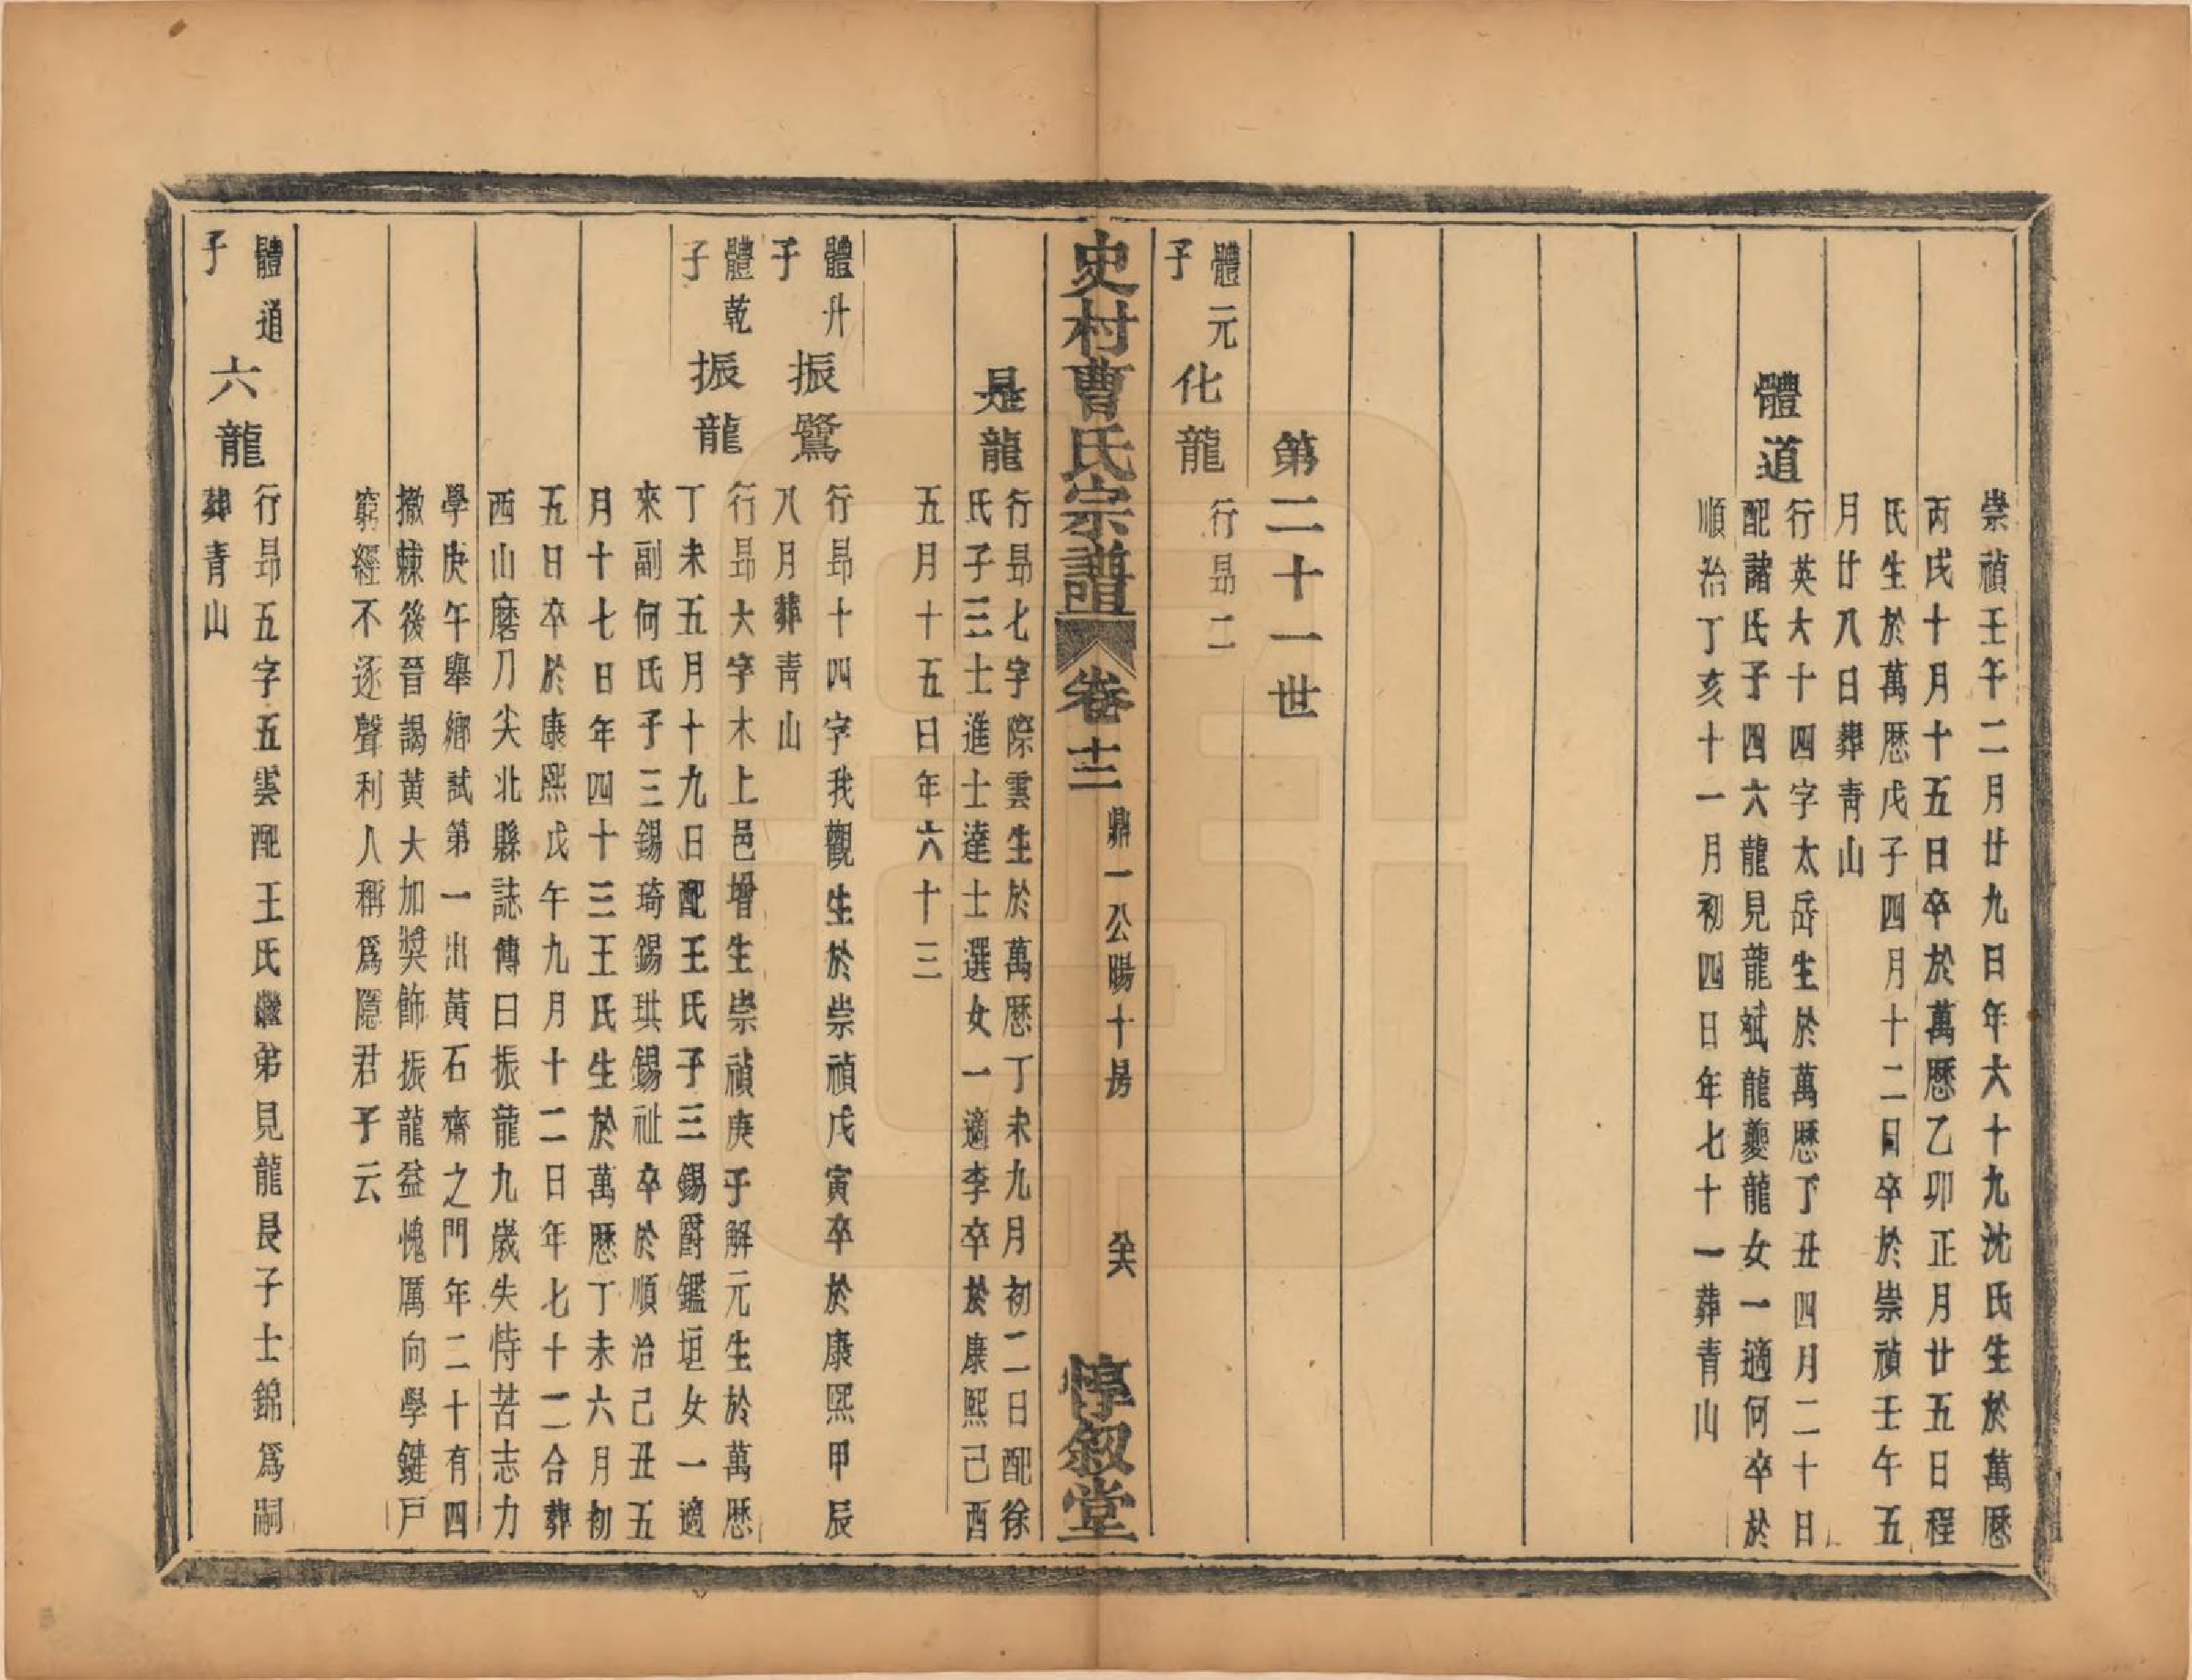 崇禎壬午二月廿九日年六十九沈氏生於萬歷
丙戌十月十五日卒於萬歷乙卯正月廿五日程
氏生於萬歷戊子四月十二日卒於崇禎壬午五
月廿八日葬青山
體道
行英大十四字太岳生於萬歷丁丑四月二十日
配諸氏子四六龍見龍斌龍夔龍女一適何卒於
順治丁亥十一月初四日年七十一葬青山
第二十一世
體元
子
化龍
行昻二
史村曹氏宗譜
卷十二
鼎一公暘十房
癸
惇叙堂
是龍
行昻七字際雲生於萬歷丁未九月初二日配徐
氏子三士進士達士選女一適李卒於康熙己酉
五月十五日年六十三
體升
子
振鷺
行昻十四字我觀生於崇禎戊寅卒於康熙甲辰
八月葬青山
體乾
子
振龍
行昻大字木上邑增生崇禎庚子解元生於萬歷
丁未五月十九日配王氏子三錫爵鑑垣女一適
來副何氏子三錫琦錫珙錫祉卒於順治己丑五
月十七日年四十三王氏生於萬歷丁未六月初
五日卒於康熙戊午九月十二日年七十二合葬
西山磨刀尖北縣誌傳曰振龍九歲失恃苦志力
學庚午舉鄉試第一出黃石齋之門年二十有四
撤棘後晉謁黃大加奬飾振龍益愧厲向學鍵戶
窮經不逐聲利人稱爲隱君子云
體道
子
六龍
行昻五字五雲配王氏繼弟見龍長子士錦爲嗣
葬青山